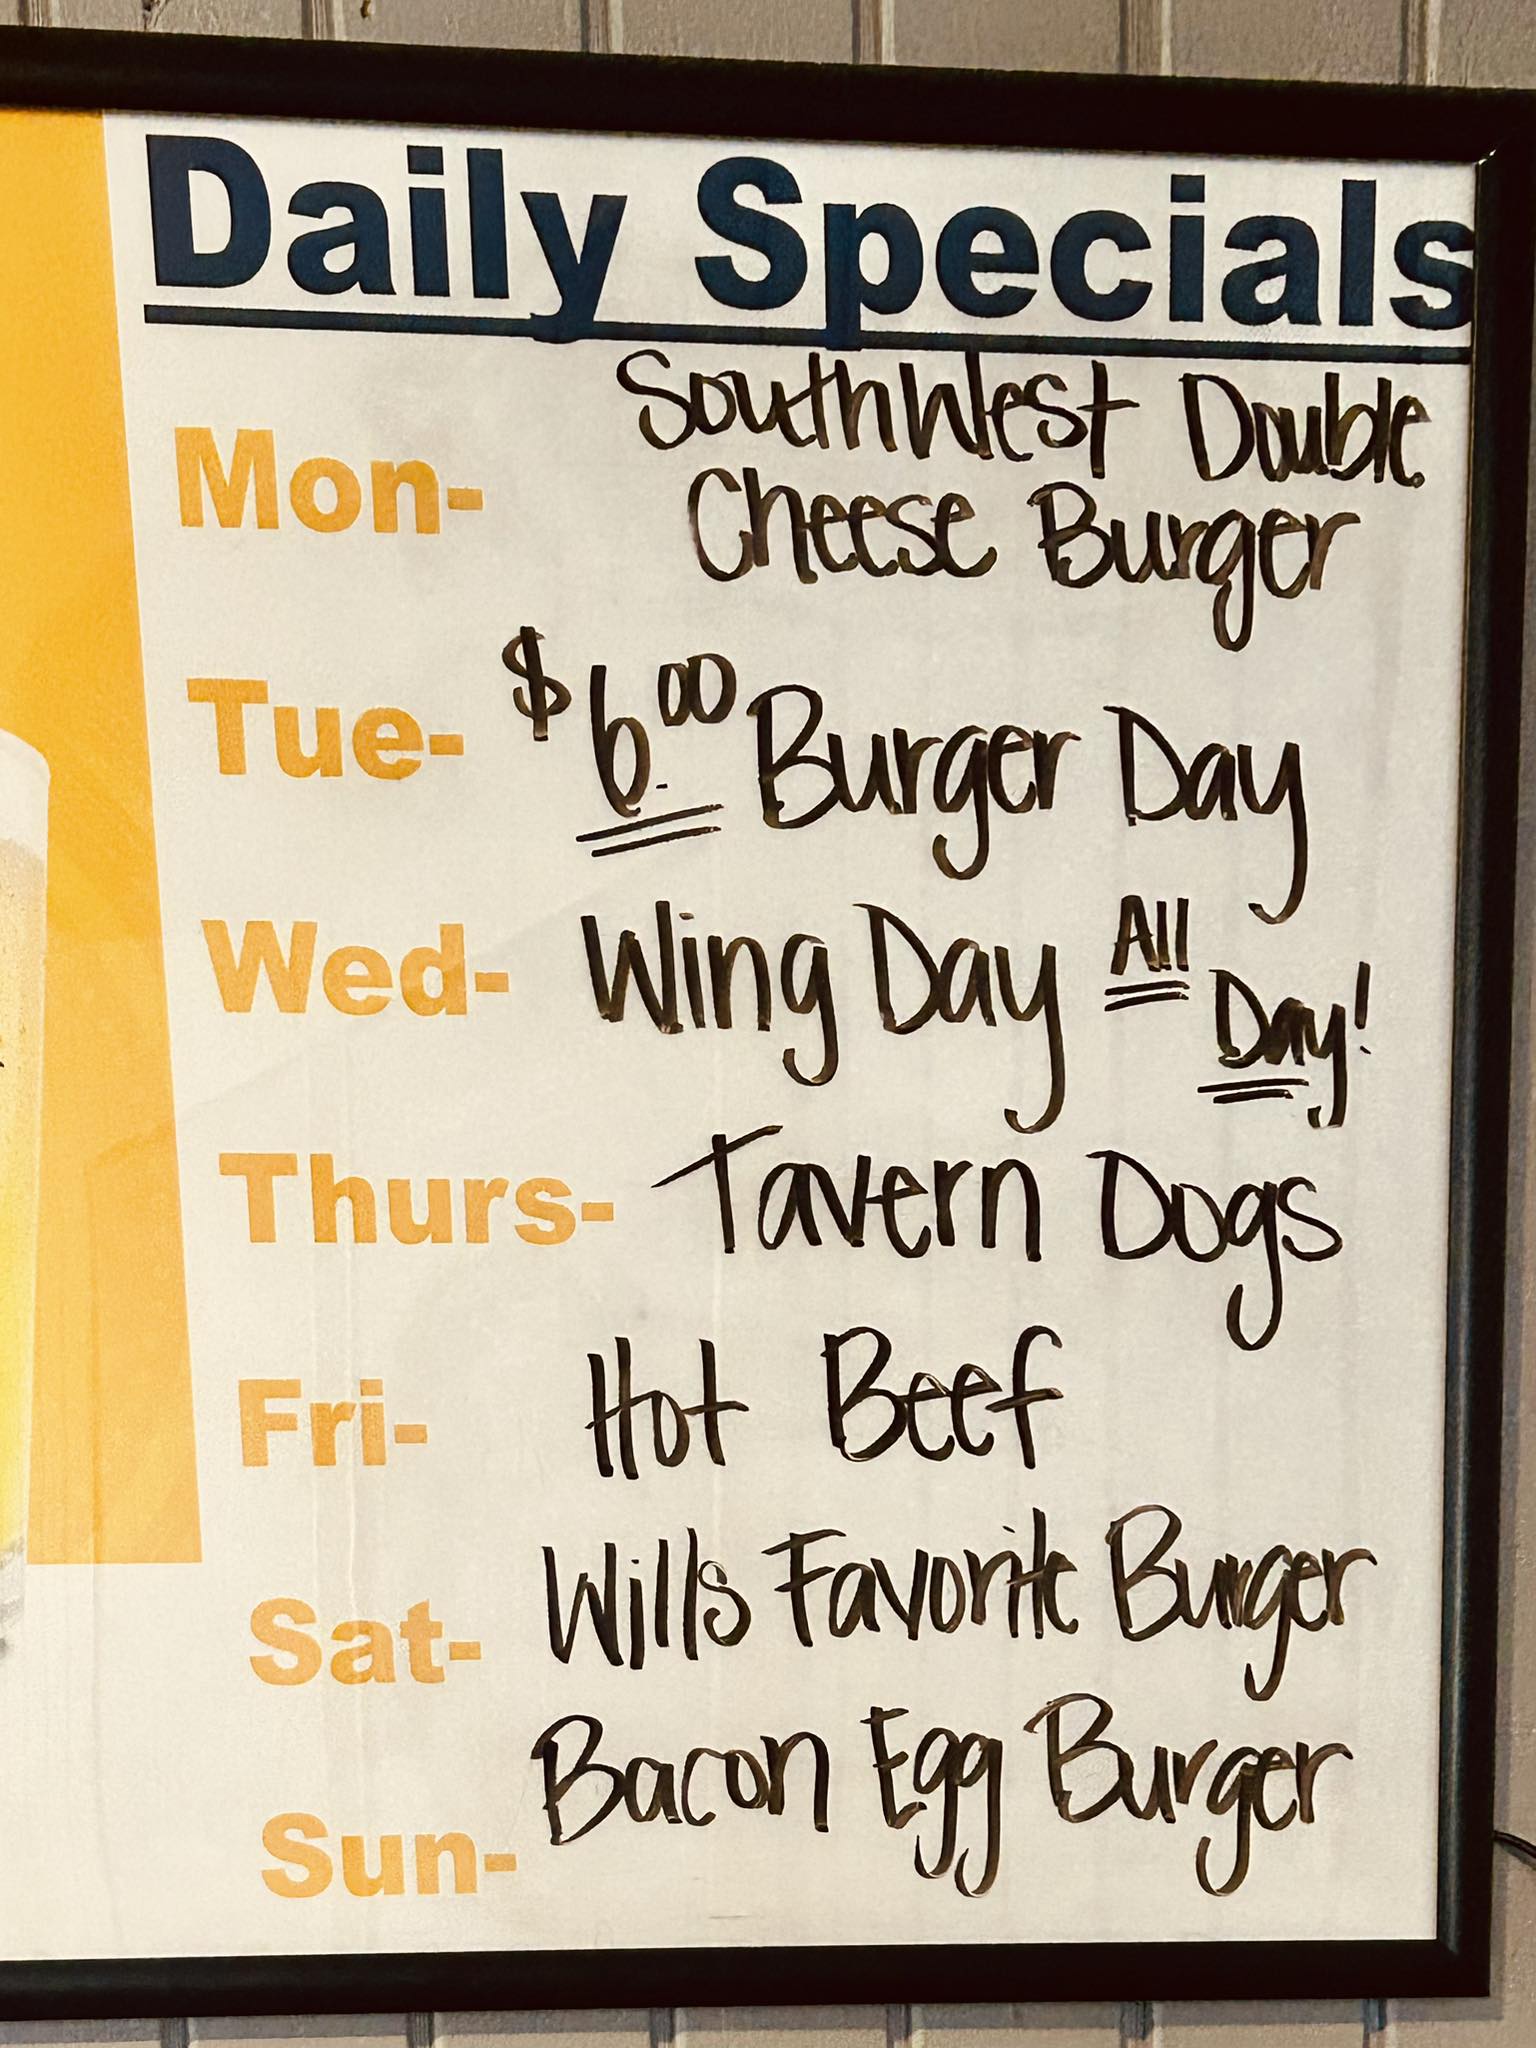 Daily Specials
Mon- SouthWest Double
Cheese Burger
Tue- $6.00 Burger Day
Wed- Wing Day All Day!
Thurs- Tavern Dogs
Fri- Hot Beef
Sat- Wills Favorite Burger
Sun- Bacon Egg Burger